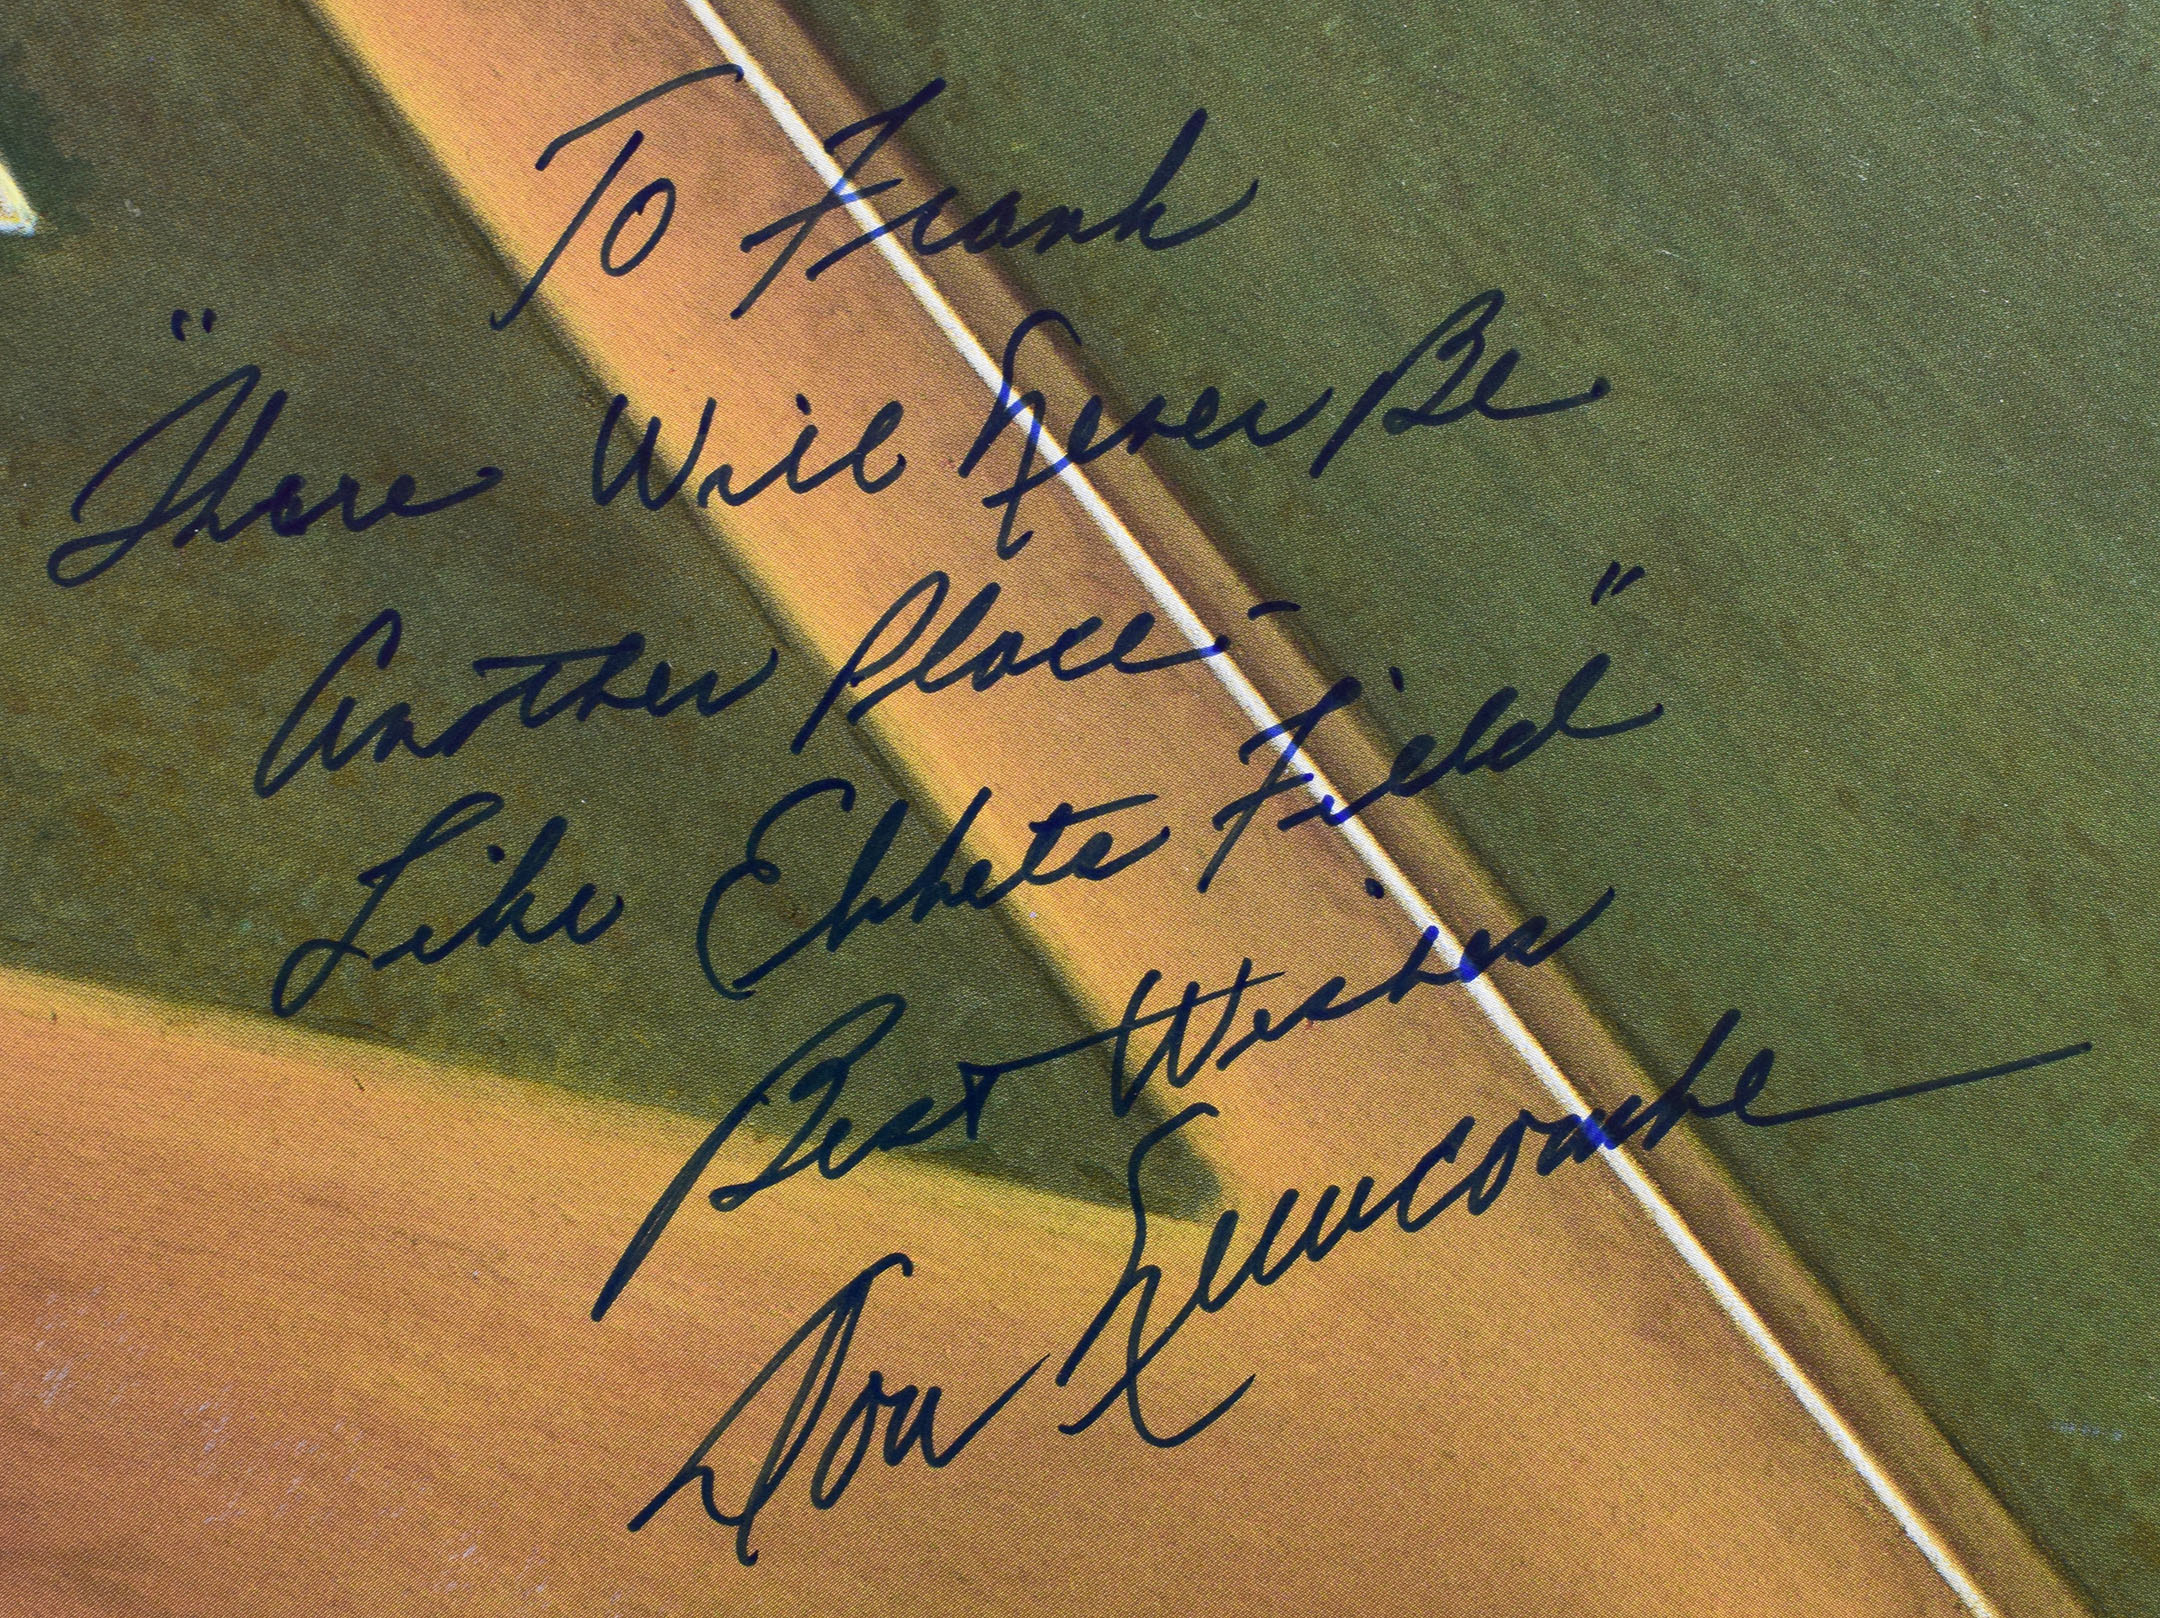 To Frank
"There Will Never Be
Another Place -
Like Ebbets Field"
Best Wishes
Don Newcombe